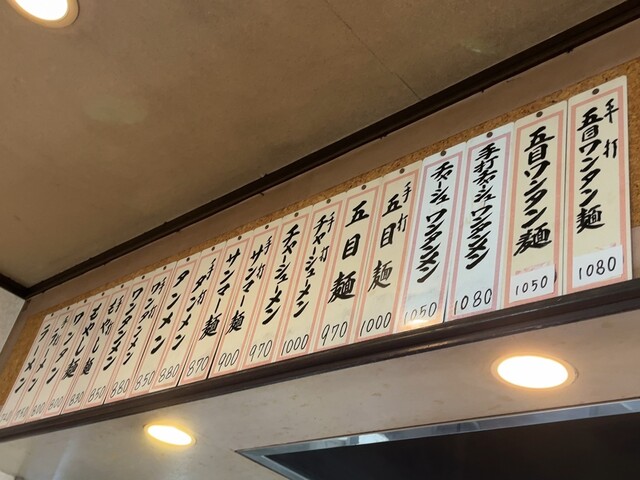 手打
五目ワンタン麺
1080
五目ワンタン麺
1050
手打チャーシューワンタンメン
1080
チャーシューワンタンメン
1050
手打
五目麺
1000
五目麺
970
手打
チャーシューメン
1000
チャーシューメン
手打
サンマー麺
970
サンマー麺
900
手打
タンメン
870
タンメン
880
ワンタンメン
850
ワンタンメン
880
もやし麺
850
もやし麺
830
ワンタン
800
ラーメン
800
ラーメン